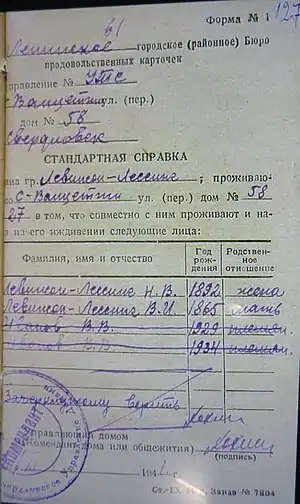 127
Форма № 1
61
Ленинское городское (районное) Бюро
продовольственных карточек
правление № УПС
С-Ванцетти ул. (пер.)
дом № 58
Свердловск
СТАНДАРТНАЯ СПРАВКА
на гр. Левинсон-Лессинг; проживаю-
по С-Ванцетти ул. (пер.) дом № 58
27 в том, что совместно с ним проживают и на-
на его иждивении следующие лица:
Фамилия, имя и отчество
Год рож- дения
Родствен- ное отношение
Левинсон-Лессинг Н.В. 1892 жена
Левинсон-Лессинг В.И. 1865 мать
Иванов В.В. 1929 племян.
1934 племян.
Зачеркнутому верить
Управляющий домом
(Комендант дома или общежития)
(подпись)
194 г.
Комендант
Ст.-IX. Заказ № 780а